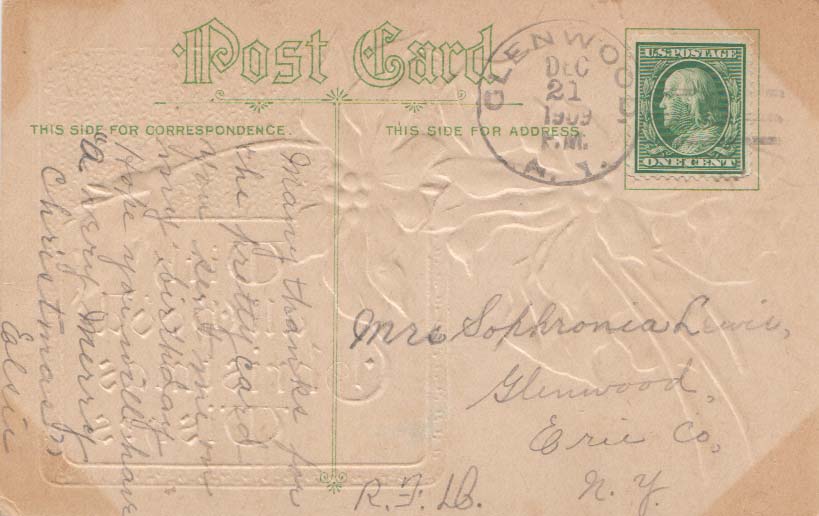 Post Card
THIS SIDE FOR CORRESPONDENCE.
THIS SIDE FOR ADDRESS.
GLENWOOD
DEC
21
1909
P.M.
N.Y.
U.S. POSTAGE
ONE CENT
Many thanks for
the pretty card
you sent me on
my birthday
Hope you will have
"a very merry
Christmas"
Elsie
Mrs Sophronia Lewis,
Glenwood,
Erie Co,
N. Y.
R. F. D.